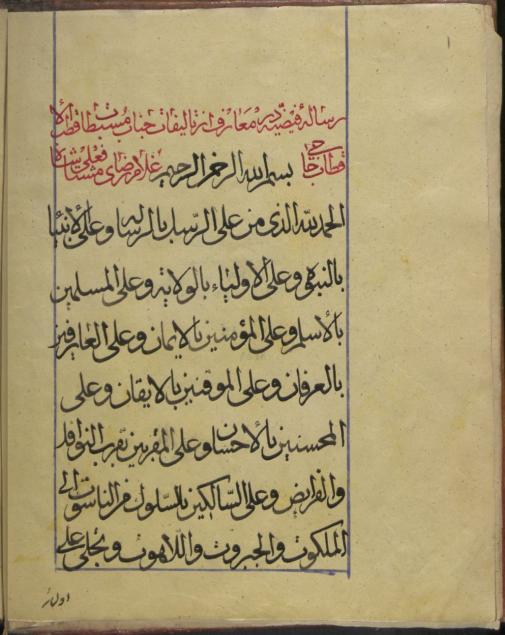 رسالهٔ فیضیّه در معارف از تالیفات جناب مستطاب قطب الا
قطاب حاجی بسم الله الرحمن الرحیم غلام رضای
الحمد لله الذی من علی الرسل بالرساله و علی الانبیا
بالنبوة و علی الاولیاء بالولایة و علی المسلمین
بالاسلم و علی المؤمنین بالایمان و علی العارفین
بالعرفان و علی الموقنین بالایقان و علی
المحسنین بالاحسان و علی المقربین بقرب النوافل
والفرایض و علی السّالکین بالسلوک من الناسوت الی
الملکوت والجبروت واللاهوت و تجلی علی